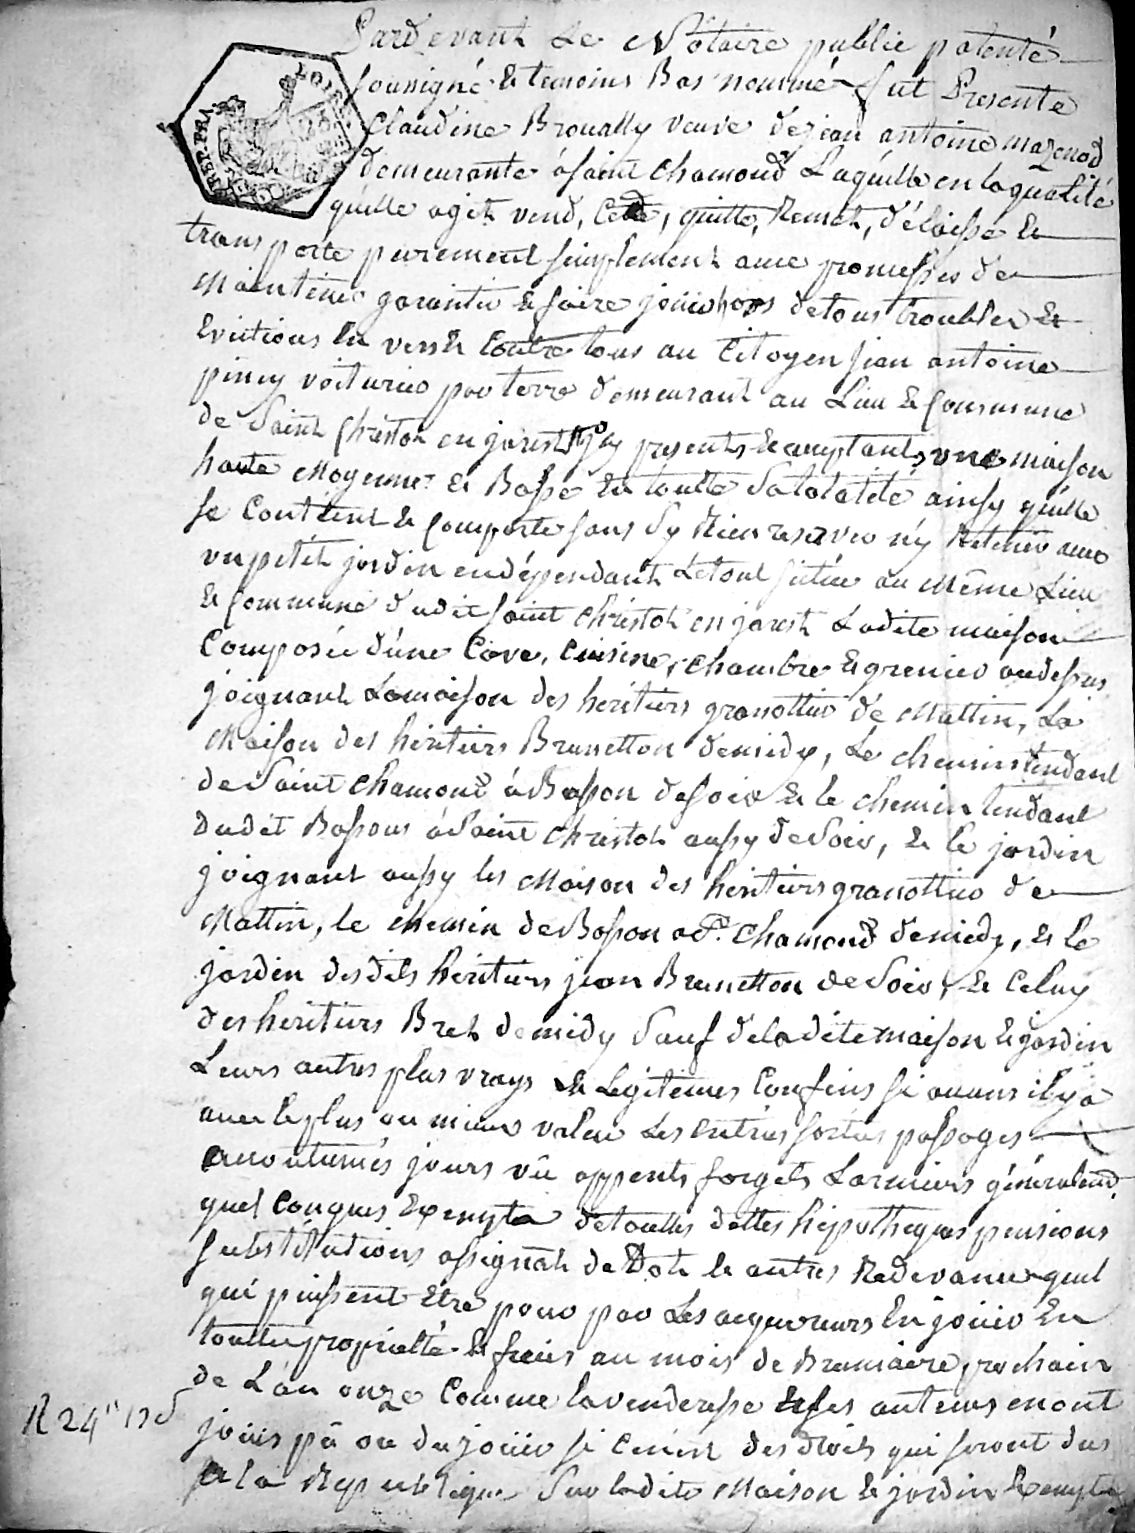 Pardevant Le Notaire public patenté
soussigné & temoins Bas nommé fut Presente
Claudine Broually veuve de jean antoine mazenod
demeurante à saint chamond Laquelle en la qualité
quélle agit vend, Cede, quitte, Remet, délaisse &
transporte purement simplement avec promesses de
Maintenir garantir & faire jouir hors de tous troubles &
Evictions En vers & Contre tous au Citoyen jean antoine
piney voiturier par terre demeurant au Lieu & Commune
de Saint Christot en jarest icy present & acceptant, une maison
haute Moyenne & Basse En toutte Sa totalité ainsy quélle
se Contient & Comporte sans sy Rien reserver ny Retenir avec
un petit jordin en dépendant Le tout situé au Même Lieu
& Commune dudit saint Christot en jarest Ladite maison
Composée d'une Cave, Cuisine, chambre & grenier au dessus
joignant La maison des heritiers granottier de Mattin, La
Maison des héritiers Brunetton de midy, Le chemin tendant
de Saint Chamond à Basson de soir & le chemin tendant
dudit Bassons à Saint Christot aussy de soir, & le jordin
joignant aussy les Maison des héritiers granottier de
Mattin, le chemin de Bosson a St. Chamond de midy, & le
jordin desdits héritiers jean Brunetton de soir, & Celuy
des heritiers Bret de midy Sauf de ladite maison & jordin
Leurs autres plus vrays & Légitimes Confins si aucuns il y a
avec le plus ou moins value Les entrées sorties passages
accoutumés jours vûe appents forgets Larmiers généralemt.
quel Conques Exempte de touttes dettes hépotheques pensions
substitutions assignat de Dot & autres Redevances quel
qui puissent Etre pour par Les acquereurs En jouir En
toutte propriété & fruis au mois de Brumaire prochain
de L'an onze Comme la venderesse & ses auteurs en ont
jouis pû ou du jouir si Ceneit des droits qui seront dus
à la Republique Sur ladite Maison & jordin Exempte
R 24" 17 d